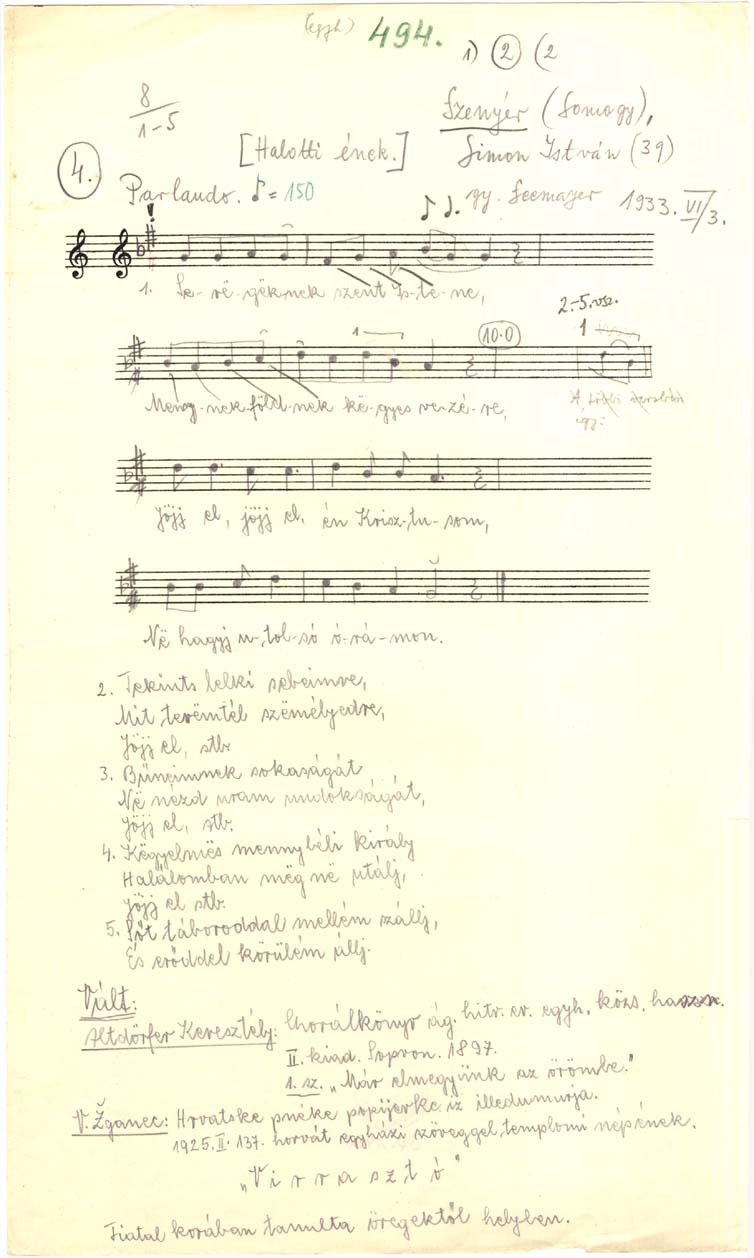 (egyh) 494.
1) 2 (2
8
1-5
Szenyér (Somogy),
[Halotti ének.] Simon István (39)
4.
Parlando. ♪=150
gy. Seemayer 1933. VI/3.
1. Se-rë-gëknek szent Is-te-ne,
10.0
2.-5. vsz.
1
1
Meny-nek föld-nek ke-gyes ve-zé-re,
Jöjj el, jöjj el, én Krisz-tu-som,
Në hagyj u-tol-só ó-rá-mon.
2. Tekints lelki sebeimre,
Mit terëmtél szëmélyedre,
Jöjj el, stb.
3. Bűneimnek sokaságát
Në nézd uram undokságát,
Jöjj el, stb.
4. Këgyelmës mennybéli király
Halálomban mëg në utálj,
Jöjj el stb.
5. Sőt táboroddal mellém szállj,
És erőddel körülem állj.
Vált:
Altdörfer Keresztély: Chorálkönyv ág. hitv. ev. egyh. közs. haszn.
II. kiad. Sopron. 1897.
1. sz. „Már elmegyünk az örömbe."
V. Žganec: Hrvatske pučke popijevke iz Međumurja.
1925. II. 137. horvát egyházi szöveggel, templomi népének.
„Virrasztó"
Fiatal korában tanulta öregektől helyben.